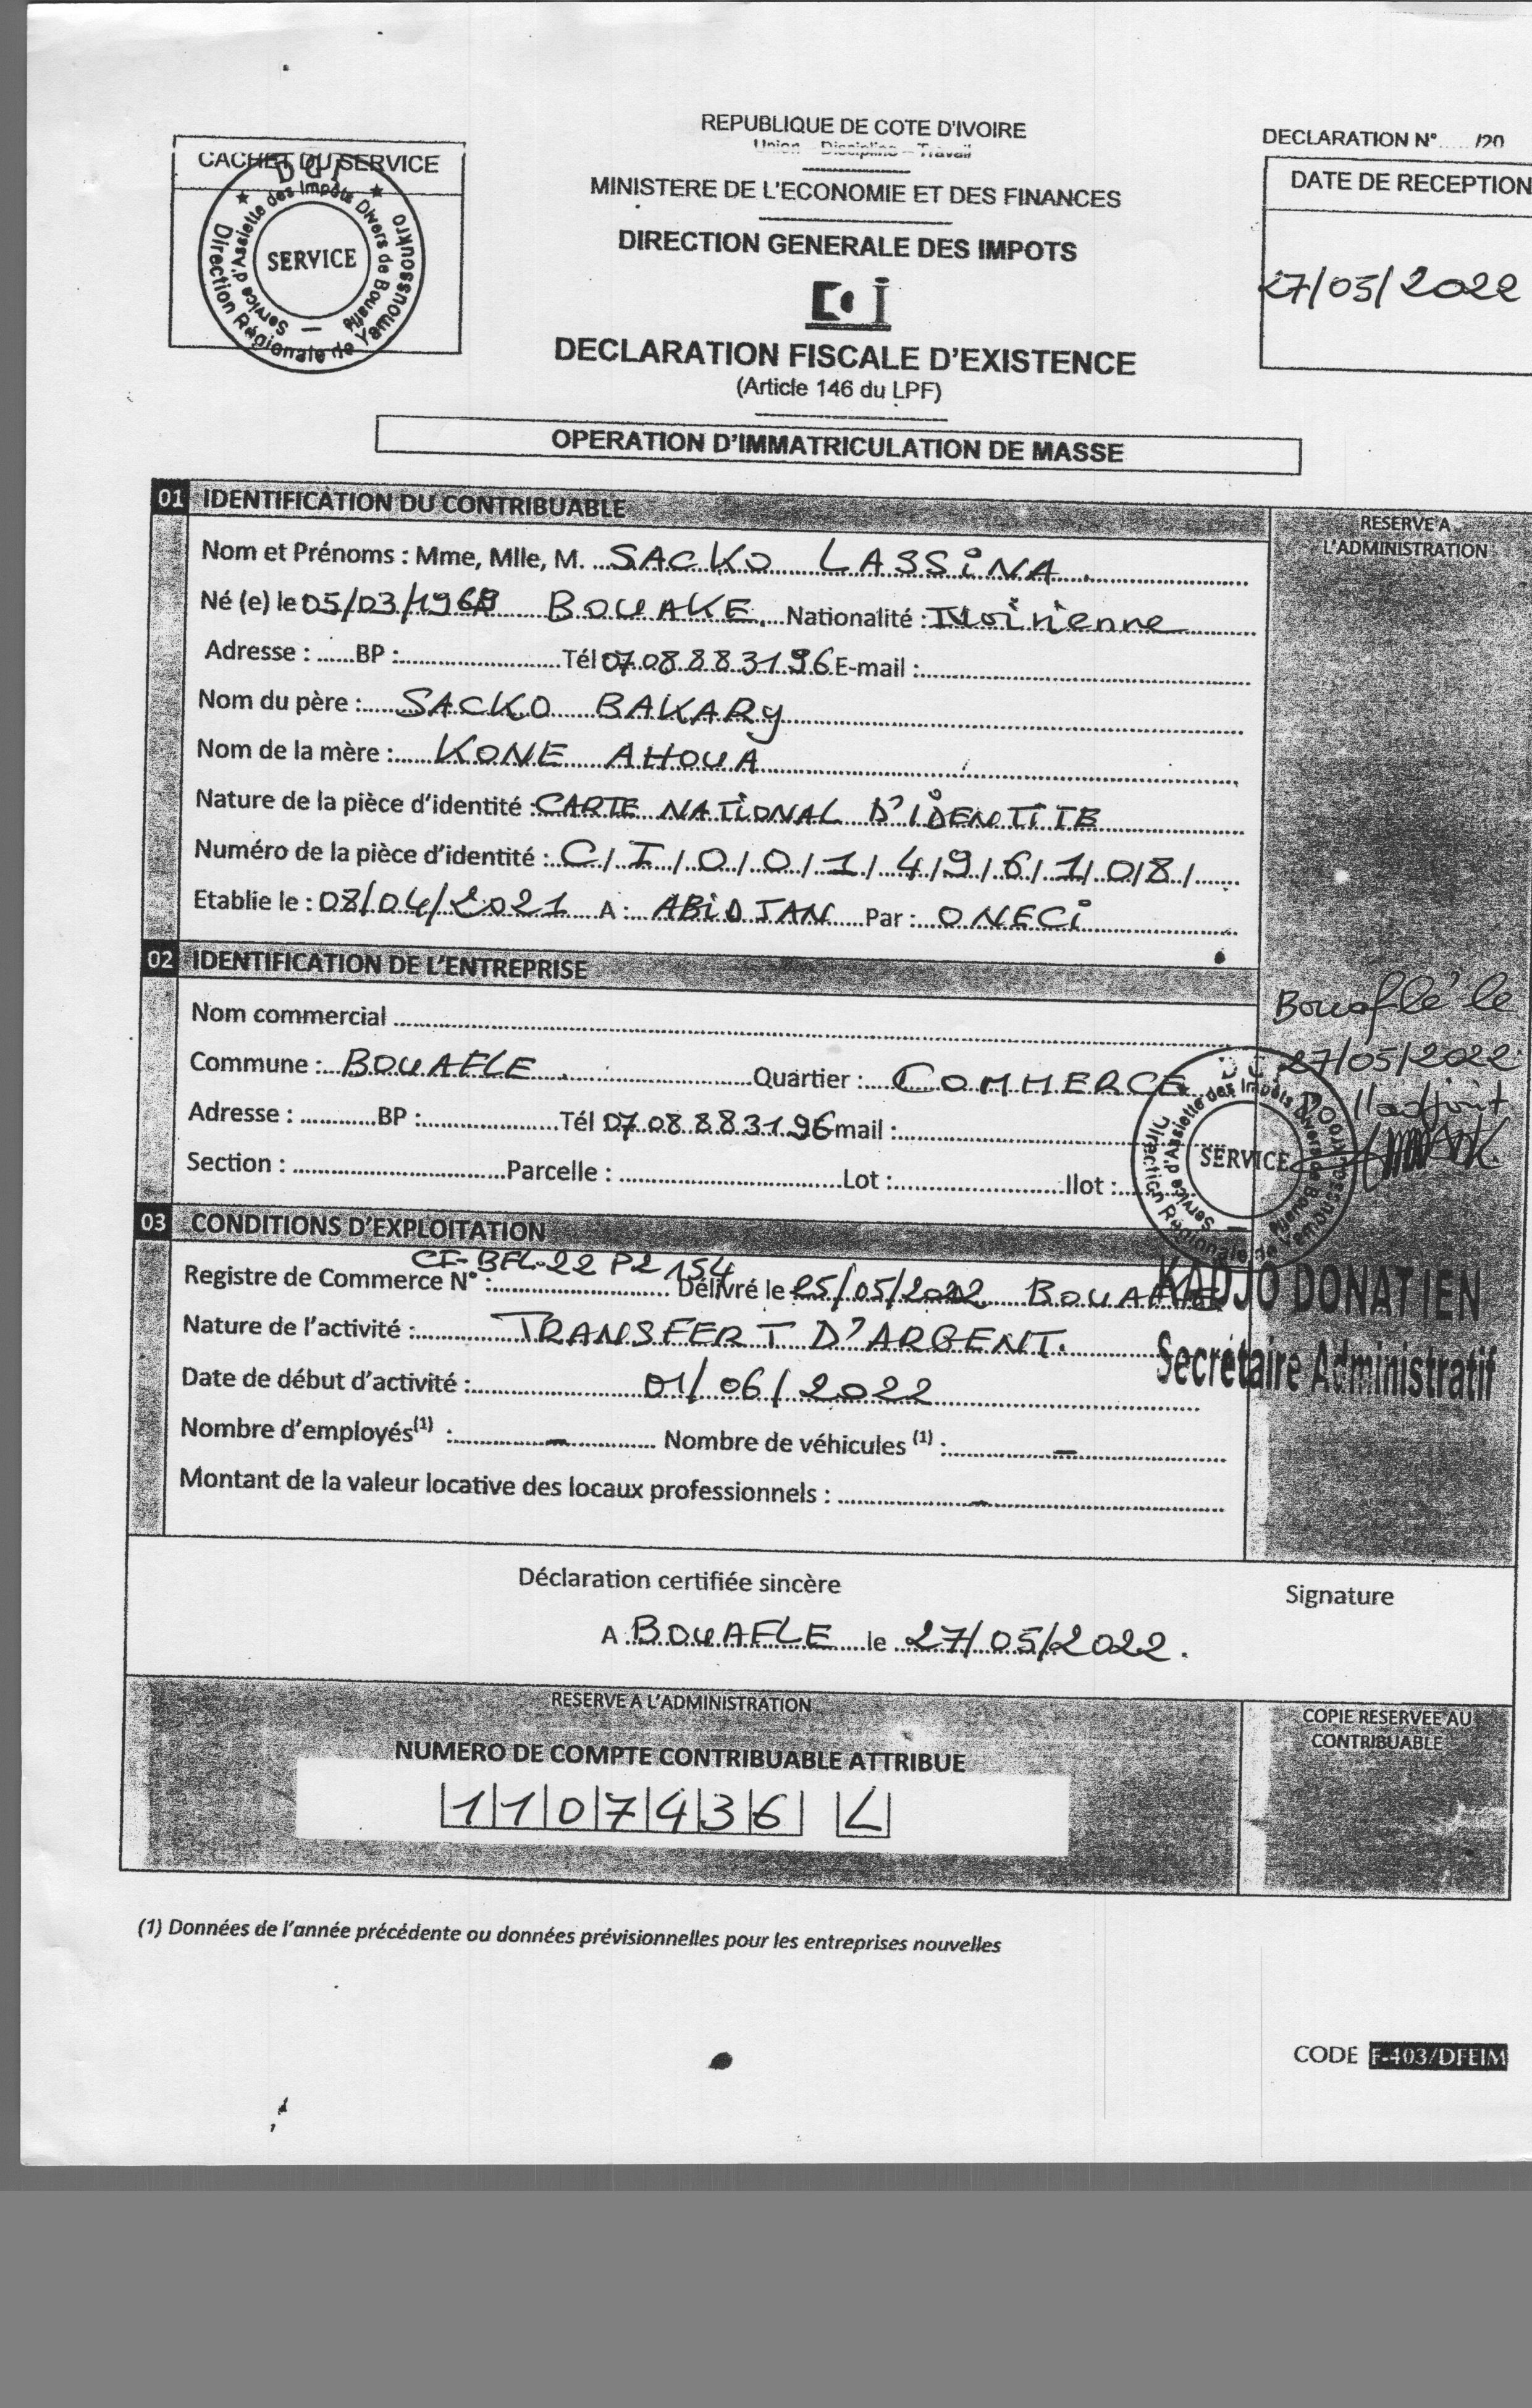 REPUBLIQUE DE COTE D'IVOIRE
Union – Discipline – Travail
MINISTERE DE L'ECONOMIE ET DES FINANCES
DIRECTION GENERALE DES IMPOTS
DECLARATION FISCALE D'EXISTENCE
(Article 146 du LPF)
CACHET DU SERVICE
DGI
Service d'Assiette des Impôts Divers de Bouaflé
Direction Régionale de Yamoussoukro
SERVICE
DECLARATION N° ...... /20
DATE DE RECEPTION
27/05/2022
OPERATION D'IMMATRICULATION DE MASSE
01 IDENTIFICATION DU CONTRIBUABLE
RESERVE A L'ADMINISTRATION
Nom et Prénoms : Mme, Mlle, M. SACKO LASSINA
Né (e) le 05/03/196 BOUAKE. Nationalité : Ivoirienne
Adresse : ......BP :............Tél 07 08 88 31 96 E-mail :............
Nom du père : SACKO BAKARY
Nom de la mère : KONE AHOUA
Nature de la pièce d'identité : CARTE NATIONAL D'IDENTITE
Numéro de la pièce d'identité : C/I/0/0/1/4/9/6/1/0/8/
Etablie le : 08/04/2021 A : ABIDJAN Par : ONECI
02 IDENTIFICATION DE L'ENTREPRISE
Nom commercial ............
Commune : BOUAFLE Quartier : COMMERCE
Adresse : ............BP :............Tél 07 08 88 31 96 mail :............
Section : ............Parcelle : ............Lot :............Ilot :......
Bouaflé le
27/05/2022
l'adjoint
Service d'Assiette des Impôts Divers de Bouaflé
Direction Régionale de Yamoussoukro
SERVICE
KADJO DONATIEN
Secrétaire Administratif
03 CONDITIONS D'EXPLOITATION
Registre de Commerce N° : CI-BFL-22 P2 154 Délivré le 25/05/2022 BOUAFLE
Nature de l'activité : TRANSFERT D'ARGENT.
Date de début d'activité : 01/06/2022
Nombre d'employés(1) : – Nombre de véhicules (1) : –
Montant de la valeur locative des locaux professionnels : –
Déclaration certifiée sincère
Signature
A BOUAFLE le 27/05/2022.
RESERVE A L'ADMINISTRATION
NUMERO DE COMPTE CONTRIBUABLE ATTRIBUE
|1|1|0|7|4|3|6| |L|
COPIE RESERVEE AU CONTRIBUABLE
(1) Données de l'année précédente ou données prévisionnelles pour les entreprises nouvelles
CODE F-403/DFEIM